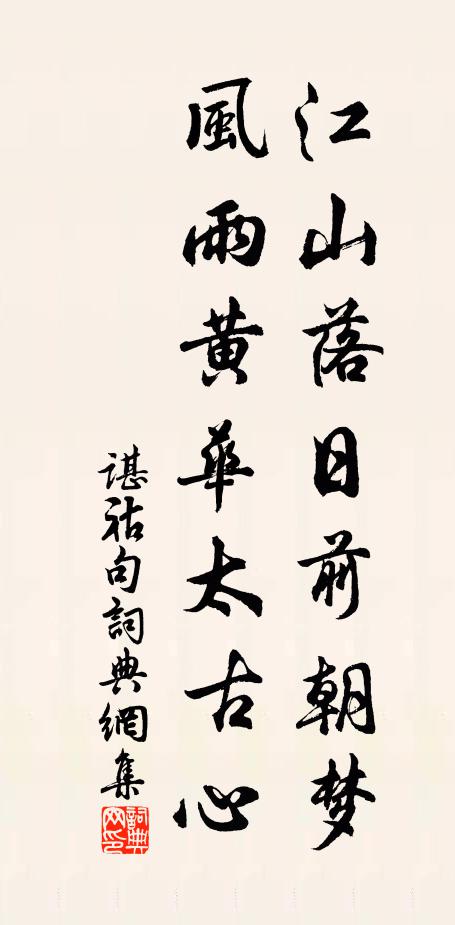 江山落日前朝梦
風雨黄華太古心
谌祜句詞典網集
詞典網印